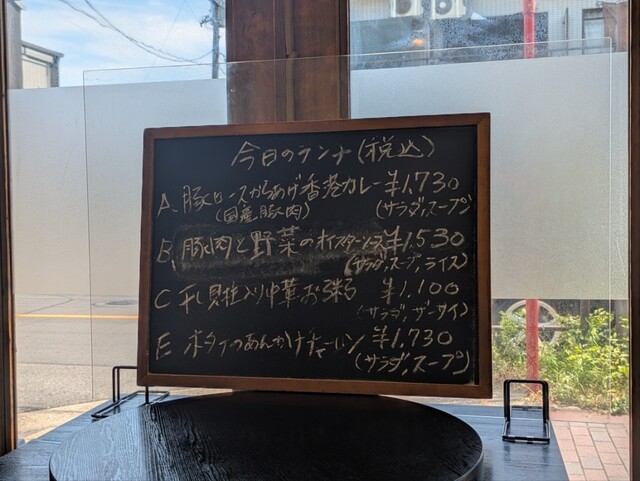 今日のランチ(税込)
A、豚ロースからあげ香港カレー ¥1,730
(国産豚肉) (サラダ,スープ)
B、豚肉と野菜のオイスターソース ¥1,530
(サラダ,スープ,ライス)
C 干し貝柱入り中華お粥 ¥1,100
(サラダ,ザーサイ)
E ホタテのあんかけチャーハン ¥1,730
(サラダ,スープ)